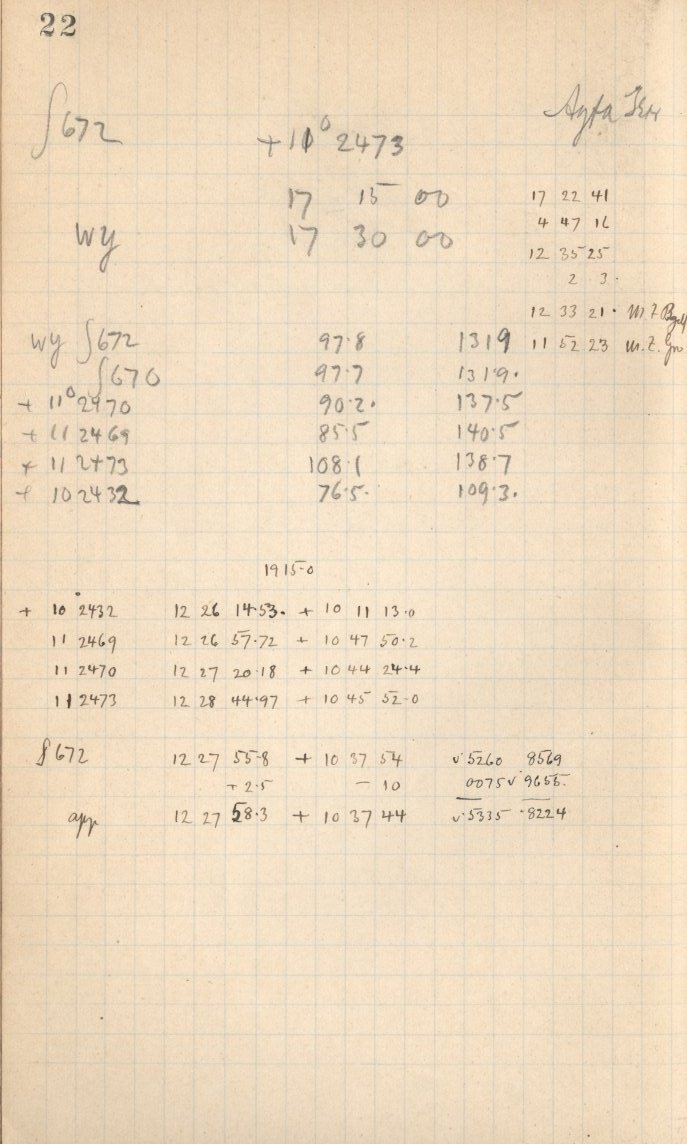 22
Agfa
∫672 +11° 2473
17 15 00 17 22 41
4 47 16
wy 17 30 00
12 35 25
2 3.
12 33 21. M Z
wy ∫672 97.8 1319 11 52 23 M.Z. Gr
∫670 97.7 1319.
+ 11° 2470 90.2. 137.5
+ 11 2469 85.5 140.5
+ 11 2473 108.1 138.7
+ 10 2432 76.5. 109.3.
1915.0
+ 10° 2432 12 26 14.53. + 10 11 13.0
11 2469 12 26 57.72 + 10 47 50.2
11 2470 12 27 20.18 + 10 44 24.4
11 2473 12 28 44.97 + 10 45 52.0
∫672 12 27 55.8 + 10 37 54 v.5260 8569
+ 2.5 − 10 0075 v 9655.
app 12 27 58.3 + 10 37 44 v.5335 .8224